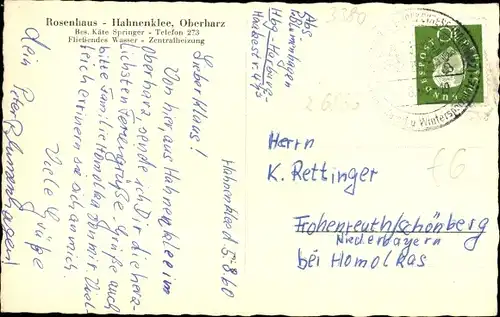 Rosenhaus - Hahnenklee, Oberharz
Bes. Käte Springer - Telefon 273
Fließendes Wasser - Zentralheizung
Hahnenklee d. 5.8.60
Lieber Klaus!
Von hier, aus Hahnenklee im
Oberharz, sende ich Dir die herz-
lichsten Feriengrüße. Grüße auch
bitte Familie Homolka von mir. Viel-
leicht erinnern sie sich an mich.
Viele Grüße
Dein Peter Blumenhagen
Abs.
P. Blumenhagen
Hbg.-Harburg
Herrn
K. Rettinger
Frohenreuth/Schönberg
Niederbayern
bei Homolkas
3380
DEUTSCHE BUNDESPOST
u Wintersport